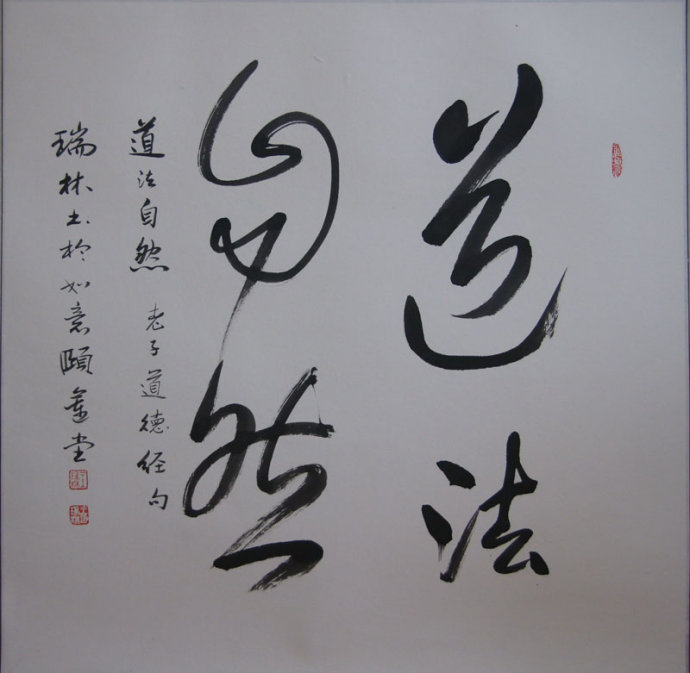 道法
自然
道法自然 老子道德经句
瑞林书於如意頤堂